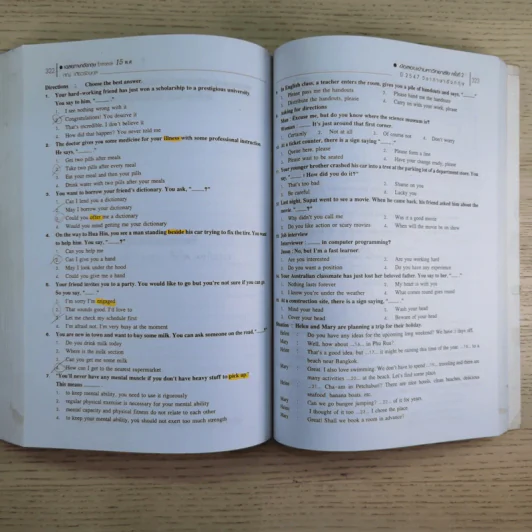 Directions : Choose the best answer.
1. Your hard-working friend has just won a scholarship to a prestigious university.
You say to him, "........"
1. I see nothing wrong with it
2. Congratulations! You deserve it
3. That's incredible. I don't believe it
4. How did that happen? You never told me
2. The doctor gives you some medicine for your illness with some professional instruction.
He says, "........"
1. Get two pills after meals
2. Take two pills after every meal
3. Eat your meal and then your pills
4. Drink water with two pills after your meals
3. You want to borrow your friend's dictionary. You ask, "........?"
1. Can I lend you a dictionary
2. May I borrow your dictionary
3. Could you offer me a dictionary
4. Would you mind getting me your dictionary
4. On the way to Hua Hin, you see a man standing beside his car trying to fix the tire. You want
to help him. You say, "........?"
1. Can you help me
2. Can I give you a hand
3. May I look under the hood
4. Could you give me a hand
5. Your friend invites you to a party. You would like to go but you're not sure if you can go.
So you say, "........"
1. I'm sorry I'm engaged
2. That sounds good. I'd love to
3. Let me check my schedule first
4. I'm afraid not. I'm very busy at the moment
6. You are new in town and want to buy some milk. You can ask someone on the road, "........?"
1. Do you drink milk today
2. Where is the milk section
3. Can you get me some milk
4. How can I get to the nearest supermarket
"You'll never have any mental muscle if you don't have heavy stuff to pick up."
This means ........
1. to keep mental ability, you need to use it rigorously
2. regular physical exercise is necessary for your mental ability
3. mental capacity and physical fitness do not relate to each other
4. to keep your mental ability, you should not exert too much strength
In English class, a teacher enters the room, gives you a pile of handouts and says, "........"
Please pass me the handouts
2. Please hand me the handouts
Distribute the handouts, please
4. Carry on with your work, please
asking for directions
Man : Excuse me, but do you know where the science museum is?
Woman : ........ It's just around that first corner.
Certainly
2. Not at all
3. Of course not
4. Don't worry
At a ticket counter, there is a sign saying "........"
Queue here, please
2. Please form a line
Please wait to be seated
4. Have your change ready, please
Your younger brother crashed his car into a tree at the parking lot of a department store. You
say, "........ ! How did you do it?"
That's too bad
2. Shame on you
Be careful
4. Lucky you
Last night, Supat went to see a movie. When he came back, his friend asked him about the
movie. "........?"
Why didn't you call me
2. Was it a good movie
Do you like action or scary movies
4. When will the movie be on show
Job interview
Interviewer : ........ in computer programming?
Jane : No, but I'm a fast learner.
Are you interested
2. Are you working hard
Do you want a position
4. Do you have any experience
Your Australian classmate has just lost her beloved father. You say to her, "........"
Nothing lasts forever
2. My heart is with you
I know you're under the weather
4. What comes round goes round
At a construction site, there is a sign saying, "........"
Mind your head
2. Wash your head
Cover your head
4. Beware of your head
Situation : Helen and Mary are planning a trip for their holiday.
Do you have any ideas for the upcoming long weekend? We have 3 days off.
Mary : Well, how about
in Phu Rua?
That's a good idea, but
it might be raining this time of the year.
to a
beach near Bangkok.
Mary : Great! I also love swimming. We don't have to spend
traveling and there are
many activities
at the beach. Let's find some place.
Cha-am or Petchaburi? There are nice hotels, clean beaches, delicious
seafood, banana boats, etc.
Mary : Can we go bungee jumping?
of it for years.
I thought of it too.
I chose the place.
Mary : Great! Shall we book a room in advance?